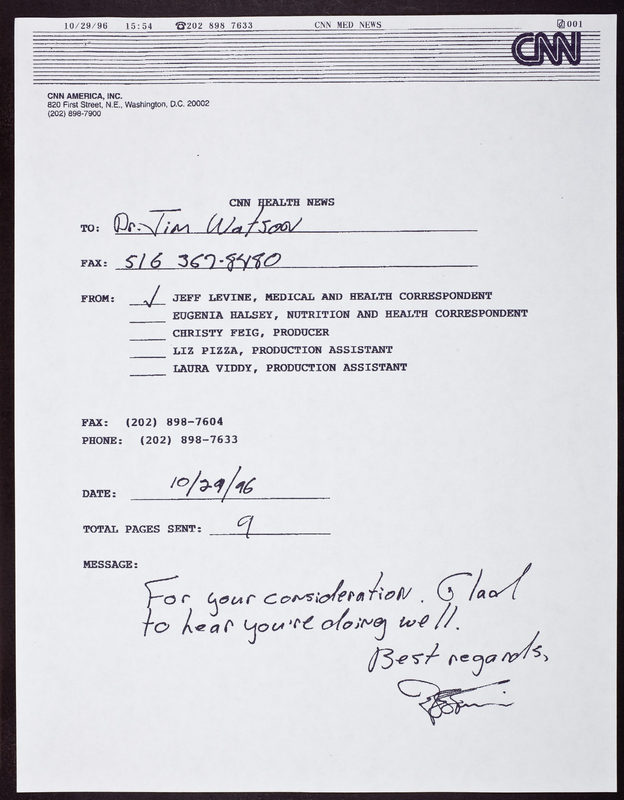 10/29/96 15:54 ☎202 898 7633 CNN MED NEWS 001
CNN
CNN AMERICA, INC.
820 First Street, N.E., Washington, D.C. 20002
(202) 898-7900
CNN HEALTH NEWS
TO: Dr. Jim Watson
FAX: 516 367-8480
FROM: ✓ JEFF LEVINE, MEDICAL AND HEALTH CORRESPONDENT
EUGENIA HALSEY, NUTRITION AND HEALTH CORRESPONDENT
CHRISTY FEIG, PRODUCER
LIZ PIZZA, PRODUCTION ASSISTANT
LAURA VIDDY, PRODUCTION ASSISTANT
FAX: (202) 898-7604
PHONE: (202) 898-7633
DATE: 10/29/96
TOTAL PAGES SENT: 9
MESSAGE:
For your consideration. Glad
to hear you're doing well.
Best regards,